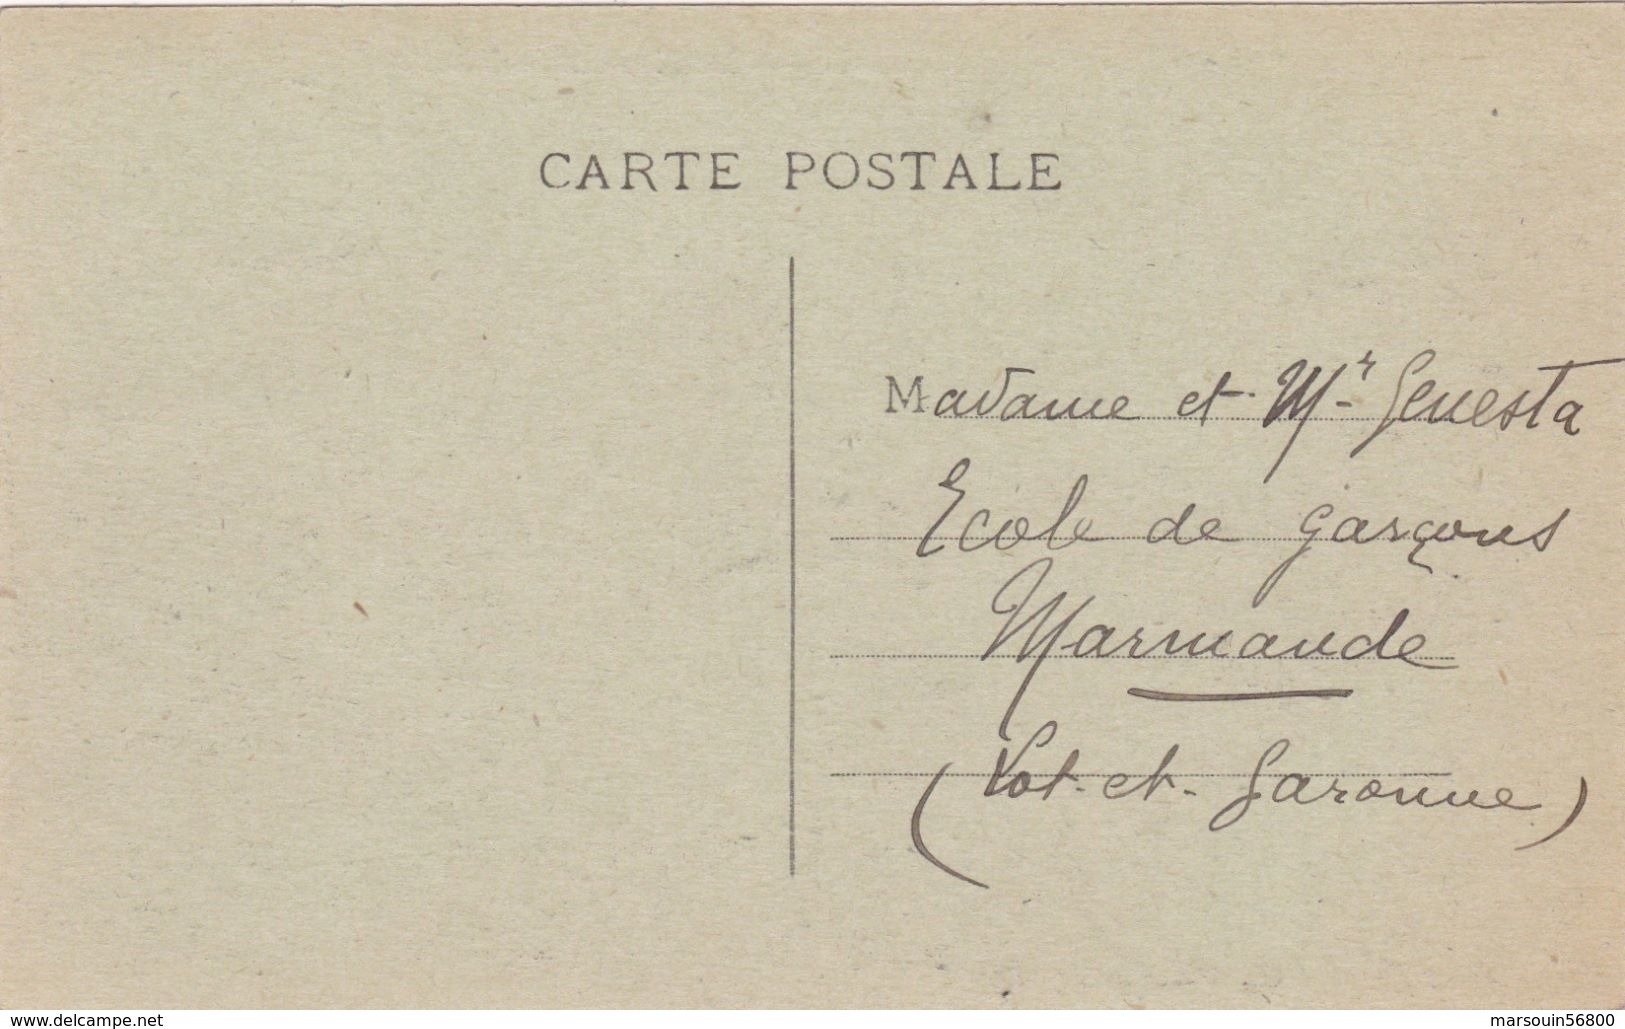 CARTE POSTALE
Madame et Mr Genesta
Ecole de garçons
Marmande
(Lot-et-Garonne)
www.delcampe.net
marsouin56800